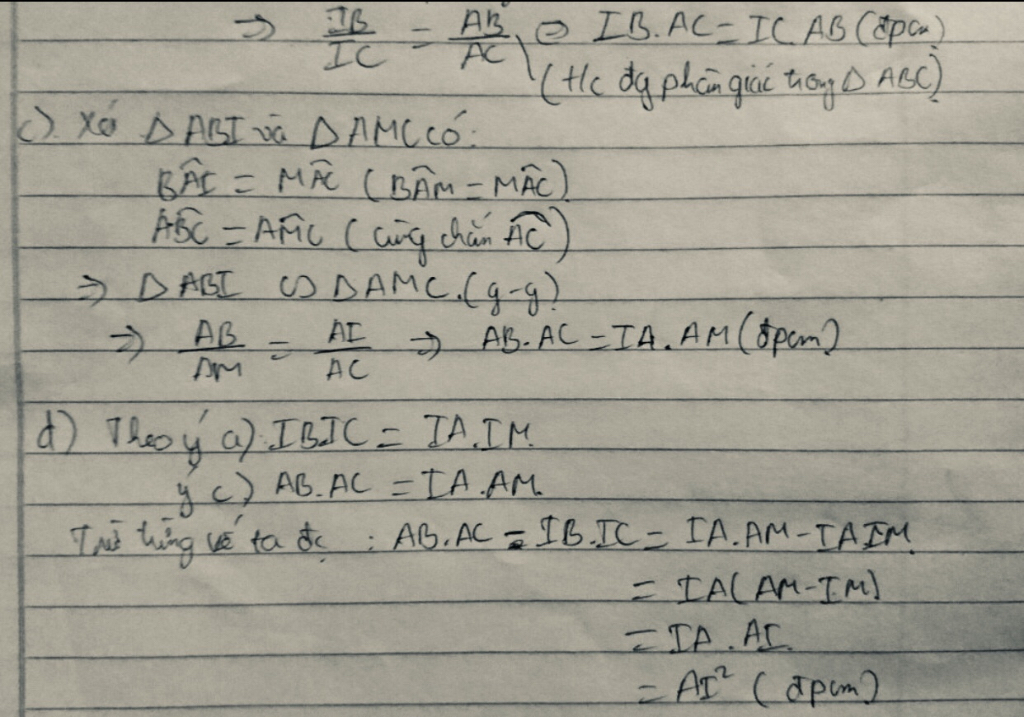 ⇒ IB/IC = AB/AC ⇔ IB.AC = IC.AB (đpcm)
(t/c đg phân giác trong Δ ABC)
c). Xét Δ ABI và Δ AMC có:
BÂI = MÂC (BÂM = MÂC)
ABC = AMC (cùng chắn AC)
⇒ Δ ABI ∽ Δ AMC.(g-g)
⇒ AB/AM = AI/AC ⇒ AB.AC = IA.AM (đpcm)
d) Theo ý a): IB.IC = IA.IM
ý c) AB.AC = IA.AM
Trừ từng vế ta đc : AB.AC - IB.IC = IA.AM - IA.IM
= IA(AM-IM)
= IA.AI
= AI² (đpcm)